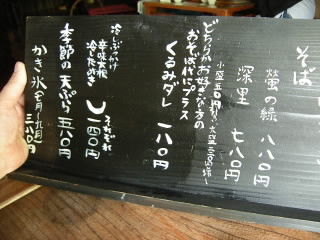 そば
蛍の緑 八八〇円
深里 七八〇円
小盛 五〇円引 大盛 二〇〇円増し
どちらかお好きな方の
おそば代にプラス
くるみダレ 一八〇円
冷しぶっかけ
辛味大根
冷したぬき
それぞれ
一四〇円
季節の天ぷら 五八〇円
かき氷(七月〜九月) 三八〇円